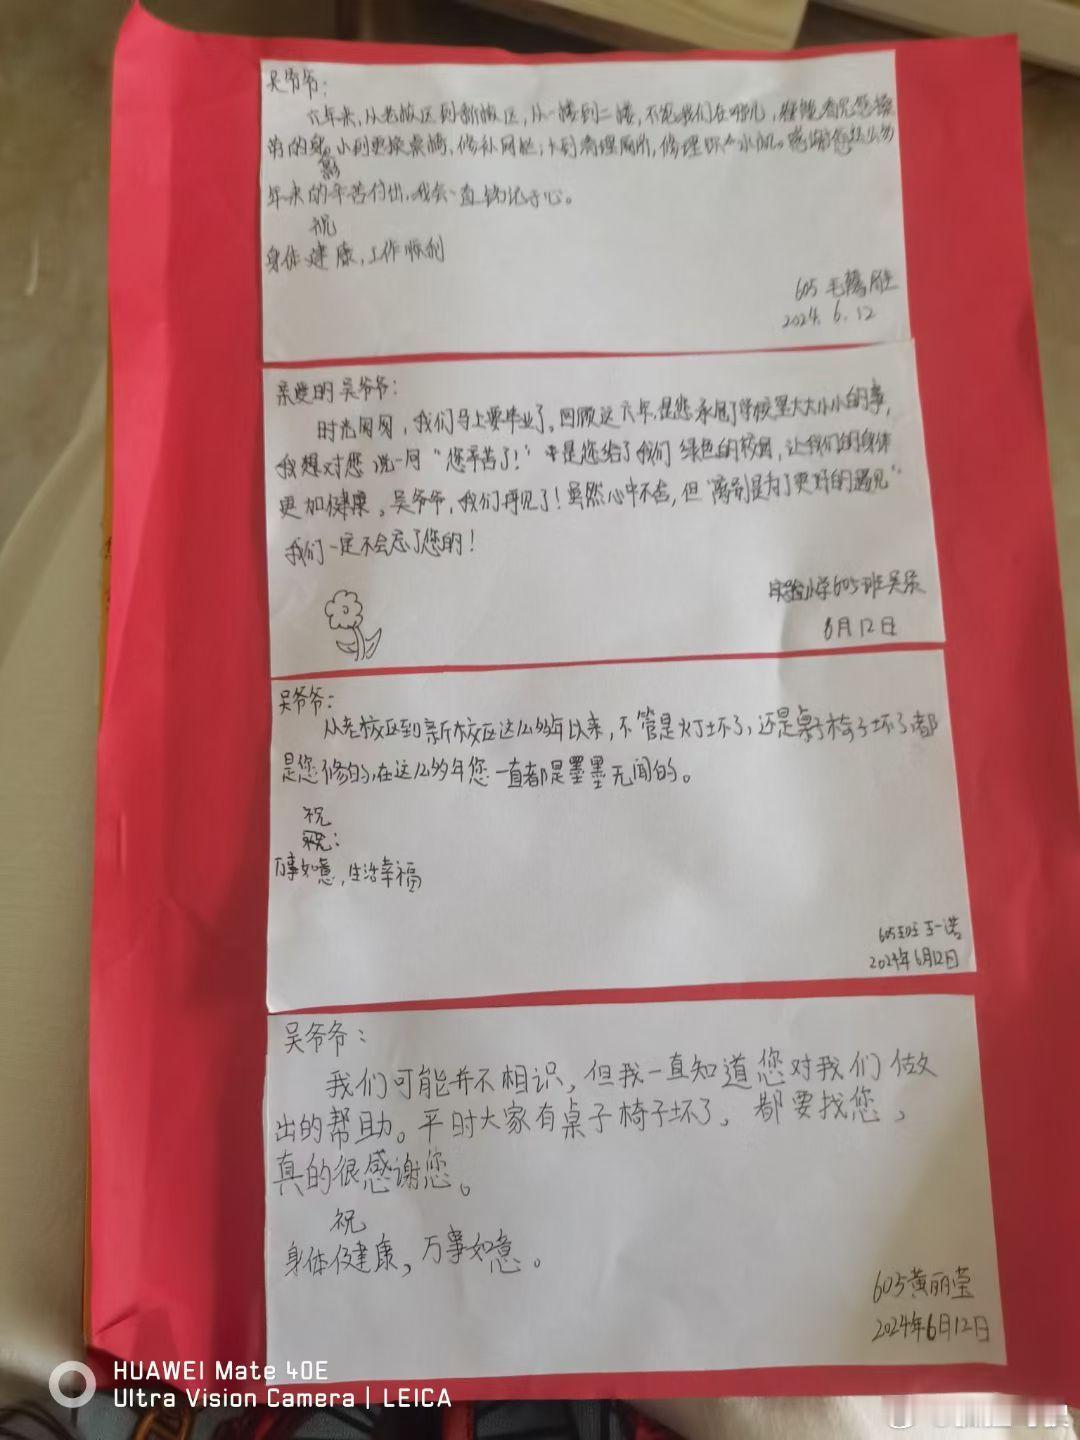 吴爷爷：
六年来，从老校区到新校区，从一楼到二楼，不论我们在哪儿，都能看见您
的身，小到更换桌椅，修补网栏，大到清理厕所，修理饮水机。感谢您这么多
年来的辛苦付出，我会一直铭记于心。
祝
身体健康，工作顺利
605 毛
2024. 6. 12
亲爱的吴爷爷：
时光匆匆，我们马上要毕业了，回顾这六年，是您承包了学校里大大小小的事，
我想对您说一句“您辛苦了！”是您给了我们绿色的校园，让我们的身体
更加健康。吴爷爷，我们再见了！虽然心中不舍，但“离别是为了更好的遇见”
我们一定不会忘了您的！
实验小学605班吴
6月12日
吴爷爷：
从老校区到新校区这么多年以来，不管是灯坏了，还是桌子椅子坏了都
是您修的，在这么多年您一直都是墨墨无闻的。
祝
祝：
万事如意，生活幸福
605班王一诺
2024年6月12日
吴爷爷：
我们可能并不相识，但我一直知道您对我们做
出的帮助。平时大家有桌子椅子坏了，都要找您，
真的很感谢您。
祝
身体健康，万事如意。
605黄丽莹
2024年6月12日
HUAWEI Mate 40E
Ultra Vision Camera | LEICA